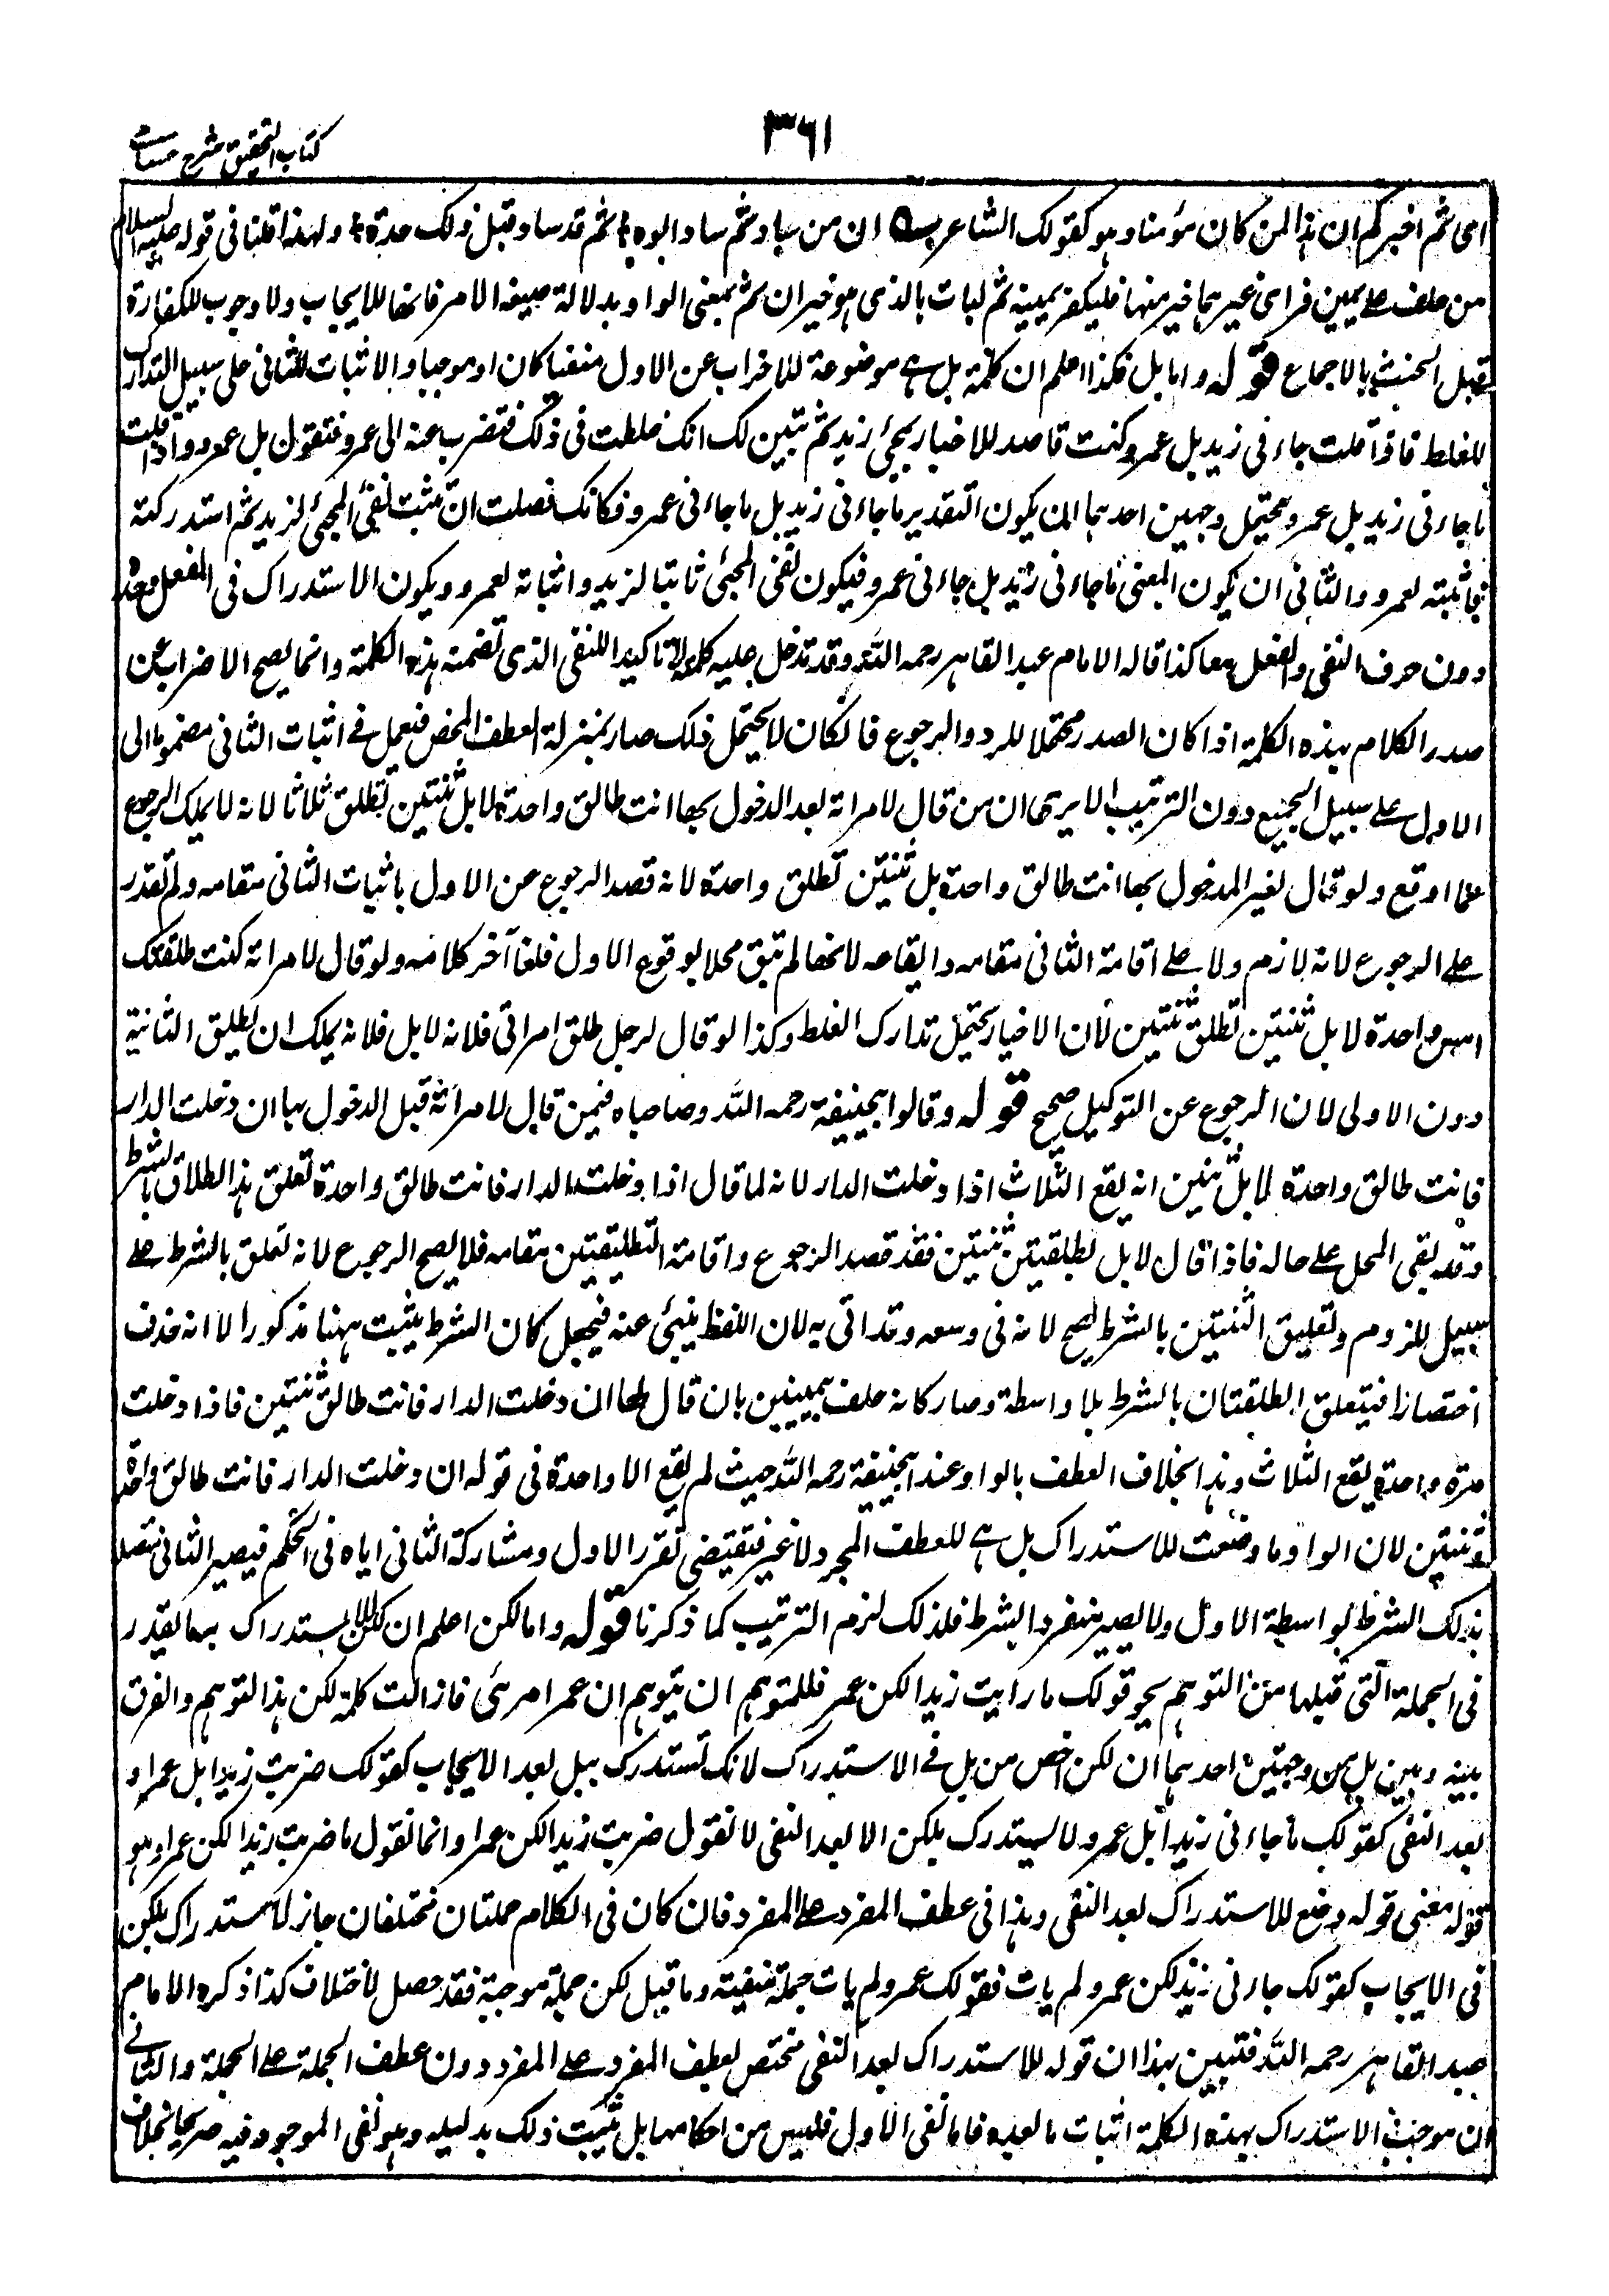 ٣٦١
كتاب التحقيق شرح حسامى
اى ثم اخبركم ان هذا لمن كان مؤمنا وهو كقولك الشاعر ان من ساد ثم ساد ابوه ثم قد ساد قبل ذلك جده ولهذا قلنا فى قوله عليه السلام
من حلف على يمين فراى غيرها خيرا منها فليكفر يمينه ثم ليات بالذى هو خير ان ثم بمعنى الواو بدلالة صيغة الامر فانها للايجاب ولا وجوب للكفارة
قبل الحنث بالاجماع قوله واما بل فكذا اعلم ان كلمة بل هى موضوعة للاضراب عن الاول منفيا كان او موجبا والاثبات للثانى على سبيل التدارك
للغلط فاذا قلت جاءنى زيد بل عمرو كنت قاصدا للاخبار بمجئ زيد ثم تبين لك انك غلطت فى ذلك فتضرب عنه الى عمرو فتقول بل عمرو واذا قلت
ما جاءنى زيد بل عمرو يحتمل وجهين احدهما ان يكون التقدير ما جاءنى زيد بل ما جاءنى عمرو فكانك قصلت ان تثبت نفى المجئ لزيد ثم استدركته
فاثبته لعمرو والثانى ان يكون المعنى ما جاءنى زيد بل جاءنى عمرو فيكون نفى المجئ ثابتا لزيد واثباته لعمرو ويكون الاستدراك فى الفعل وحده
دون حرف النفى والفعل معا كذا قاله الامام عبد القاهر رحمه الله وقد تدخل عليه كلمة لا تاكيدا للنفى الذى تضمنه هذه الكلمة وانما يصح الاضراب عن
صدر الكلام بهذه الكلمة اذا كان الصدر محتملا للرد والرجوع فان كان لا يحتمل ذلك صار بمنزلة العطف المحض فيعمل فى اثبات الثانى مضموما الى
الاول على سبيل الجمع دون الترتيب الا يرى ان من قال لامراته بعد الدخول بها انت طالق واحدة لا بل ثنتين تطلق ثلاثا لانه لا يملك الرجوع
عما اوقع ولو قال لغير المدخول بها انت طالق واحدة بل ثنتين تطلق واحدة لانه قصد الرجوع عن الاول باثبات الثانى مقامه ولم يقدر
على الرجوع لانه لازم ولا على اقامة الثانى مقامه وايقاعه لانها لم تبق محلا لوقوع الاول فلغا آخر كلامه ولو قال لامراته كنت طلقتك
امس واحدة لا بل ثنتين تطلق ثنتين لان الاخبار يحتمل تدارك الغلط وكذا لو قال لرجل طلق امراتى فلانه لا بل فلانه يملك ان يطليق الثانية
دون الاولى لان الرجوع عن التوكيل صحيح قوله وقالوا ابوحنيفة رحمه الله وصاحباه فيمن قال لامراته قبل الدخول بها ان دخلت الدار
فانت طالق واحدة لا بل ثنتين انه يقع الثلاث اذا دخلت الدار لانه لما قال اذا دخلت الدار فانت طالق واحدة تعلق هذا الطلاق بالشرط
وقد بقى المحل على حاله فاذا قال لا بل تطليقتين ثنتين فقد قصد الرجوع واقامة التطليقتين مقامه فلا يصح الرجوع لانه تعلق بالشرط على
سبيل اللزوم وتعليق الثنتين بالشرط يصح لانه فى وسعه وقد اتى به لان اللفظ ينبئ عنه فيجعل كان الشرط يثبت ههنا مذكورا الا انه حذف
اختصارا فيتعلق الطلقتان بالشرط بلا واسطة وصار كانه حلف بيمينين بان قال لها ان دخلت الدار فانت طالق ثنتين فاذا دخلت
مرة واحدة يقع الثلاث وهذا بخلاف العطف بالواو عند ابيحنيفة رحمه الله حيث لم يقع الا واحدة فى قوله ان دخلت الدار فانت طالق واحدة
وثنتين لان الواو ما وضعت للاستدراك بل هى للعطف المجرد لا غير فتقتضى تقرر الاول ومشاركة الثانى اياه فى الحكم فيصير الثانى متصلا
بذلك الشرط بواسطة الاول ولا يصير منفردا بشرط فلذلك لزم الترتيب كما ذكرنا قوله واما لكن اعلم ان كلمة لكن يستدرك بها ما يقدر
فى الجملة التى قبلها من التوهم نحو قولك ما رايت زيدا لكن عمرا فللمتوهم ان يتوهم ان عمرا مرئى فازالت كلمة لكن هذا التوهم والفرق
بينه وبين بل من وجهين احدهما ان لكن اخص من بل فى الاستدراك لانك تستدرك ببل بعد الايجاب كقولك ضربت زيدا بل عمرا و
بعد النفى كقولك ما جاءنى زيد بل عمرو ولا يستدرك بلكن الا بعد النفى لا تقول ضربت زيدا لكن عمرا وانما تقول ما ضربت زيدا لكن عمرا وهو
قوله معنى قوله وضع للاستدراك بعد النفى وهذا فى عطف المفرد على المفرد فان كان فى الكلام جملتان مختلفتان جاز الاستدراك بلكن
فى الايجاب كقولك جاءنى زيد لكن عمرو لم يات فقولك عمرو لم يات جملة منفية وما قبل لكن جملة موجبة فقد حصل الاختلاف كذا ذكره الامام
عبد القاهر رحمه الله فتبين بهذا ان قوله للاستدراك بعد النفى مختص بعطف المفرد على المفرد دون عطف الجملة على الجملة والثانى
ان موجب الاستدراك بهذه الكلمة اثبات ما بعده فاما نفى الاول فليس من احكامها بل يثبت ذلك بدليله وهو نفى الموجود فيه صريحا بخلاف